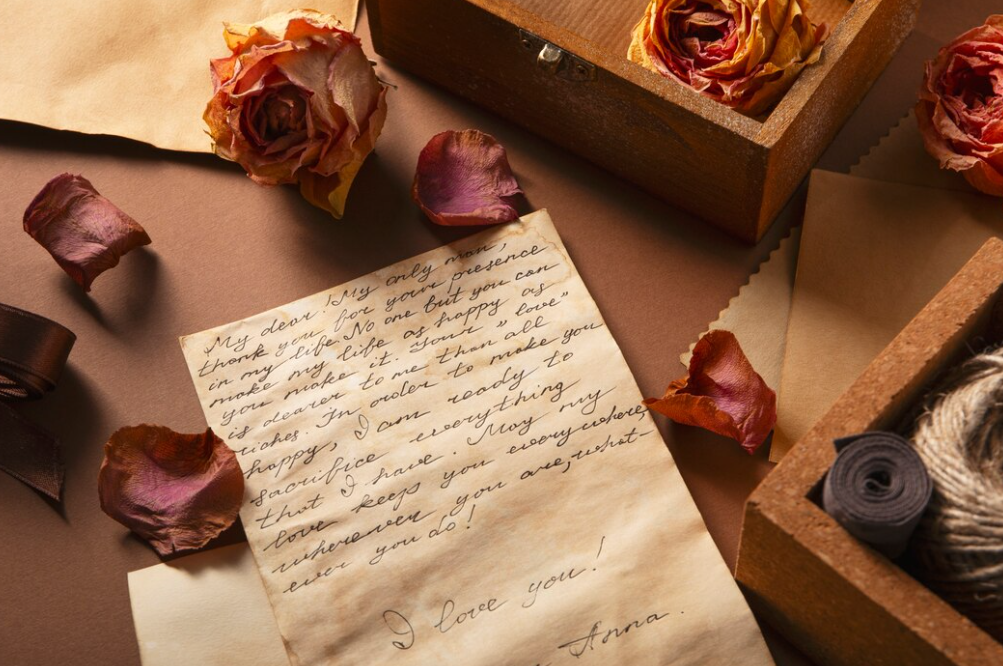 My dear! My only man,
thank you for your presence
in my life. No one but you can
make my life as happy as
you make it. Your „love”
is dearer to me than all
riches. In order to make you
happy, I am ready to
sacrifice everything
that I have. May my
love keeps you everywhere,
wherever you are, what-
ever you do!
I love you!
Anna.